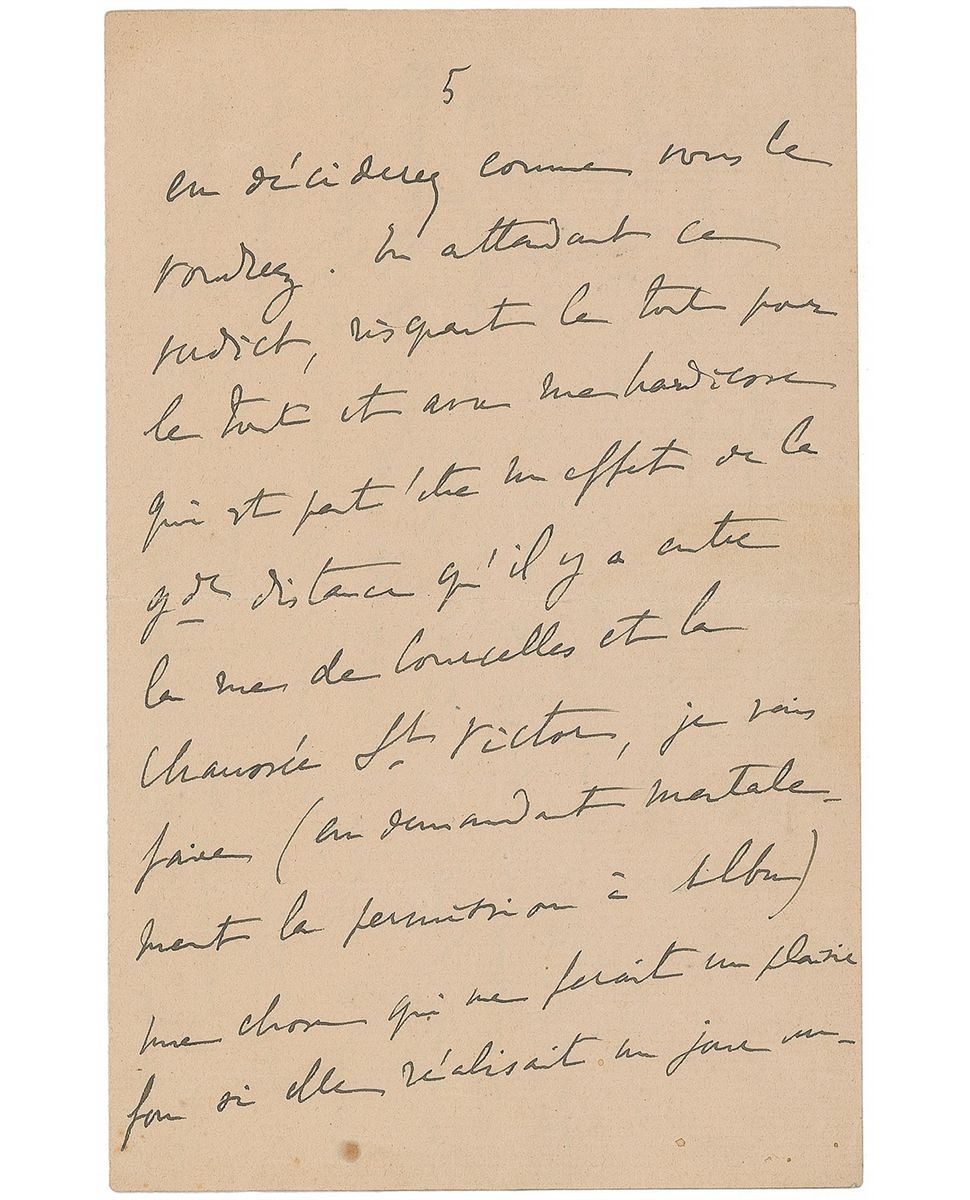 5
en déciderez comme vous le
voudrez. En attendant ce
verdict, risquant le tout pour
le tout et avec une hardiesse
qui est peut'être un effet de la
gde distance qu'il y a entre
la rue de Courcelles et la
Chaussée St Victor, je vais
faire (en demandant mentale-
ment la permission à Albu)
une chose qui me ferait un plaisir
fou si elle réalisait un jour